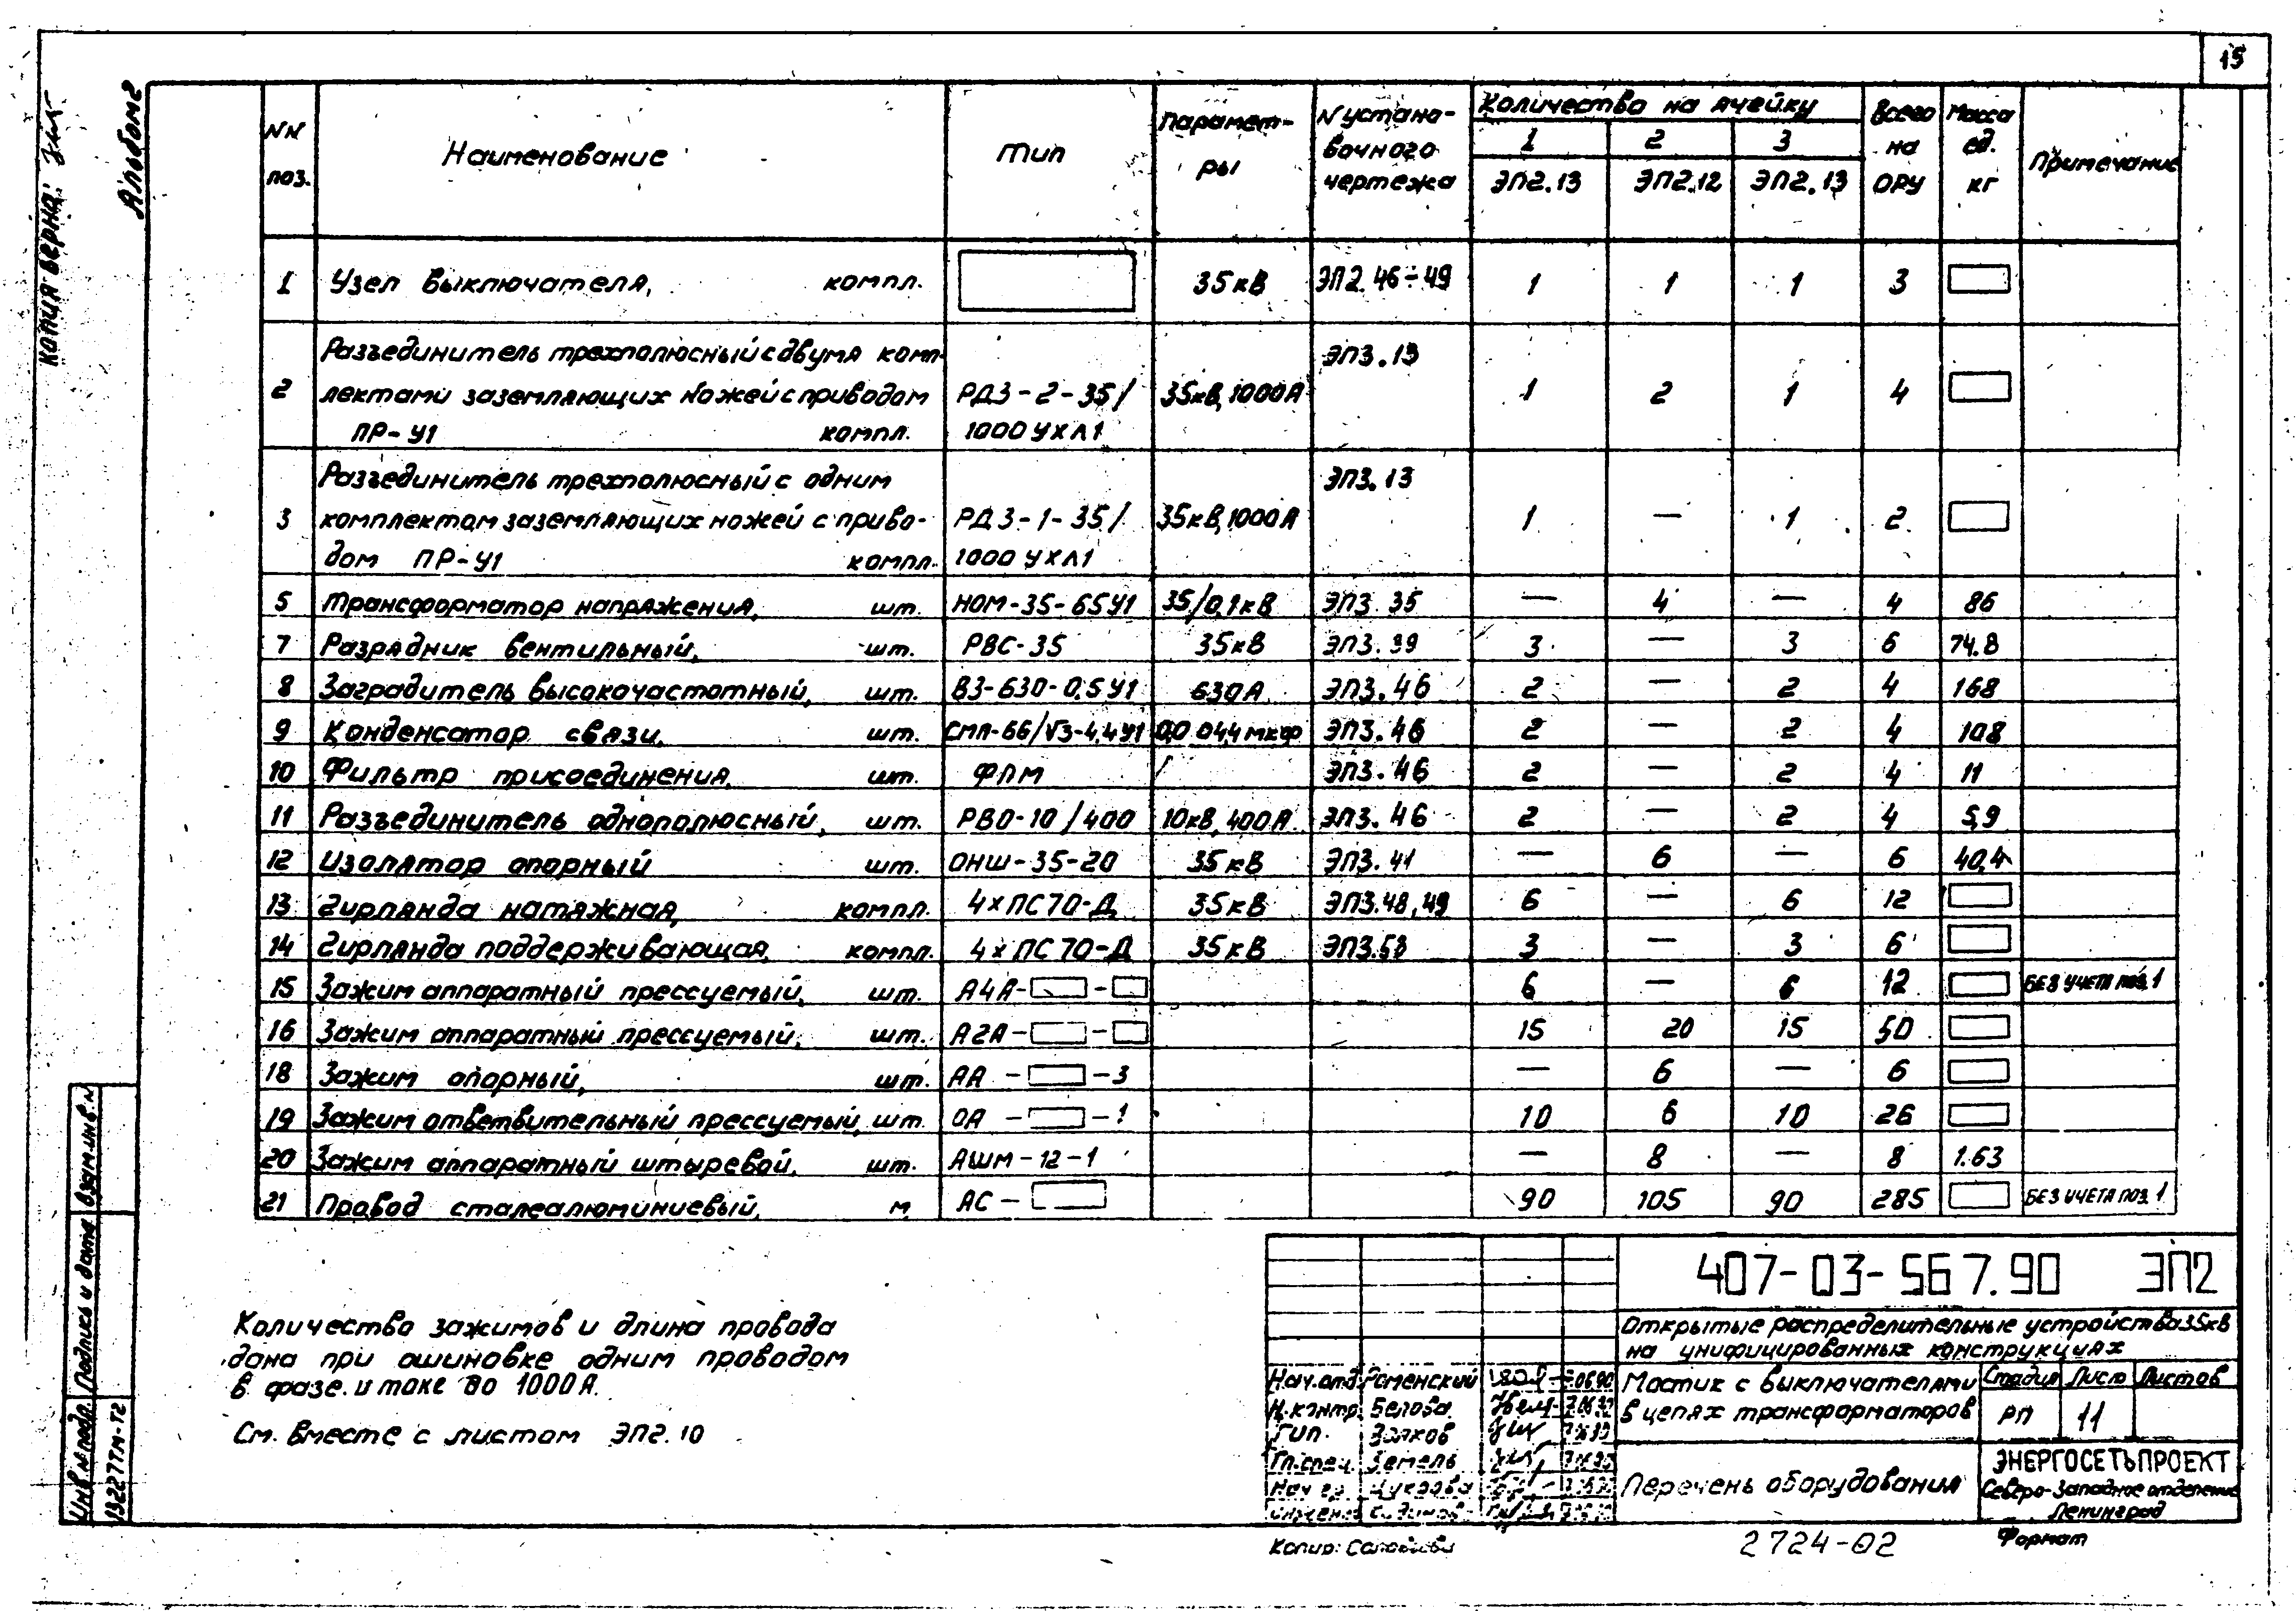 15
Копия верна:
Альбом 2
NN поз. Наименование Тип Парамет-ры N установочного чертежа Количество на ячейку Всего на ОРУ Масса ед. кг Примечание
1 2 3
ЭП2.13 ЭП2.12 ЭП2.13
1 Узел выключателя, компл. 35кВ ЭП2.46÷49 1 1 1 3
2 Разъединитель трехполюсный с двумя комп- ЭП3.13
лектами заземляющих ножей с приводом РДЗ-2-35/ 35кВ,1000А 1 2 1 4
ПР-У1 компл. 1000 УХЛ1
3 Разъединитель трехполюсный с одним ЭП3.13
комплектом заземляющих ножей с приво- РДЗ-1-35/ 35кВ,1000А 1 — 1 2
дом ПР-У1 компл. 1000 УХЛ1
5 Трансформатор напряжения, шт. НОМ-35-65У1 35/0,1кВ ЭП3.35 — 4 — 4 86
7 Разрядник вентильный, шт. РВС-35 35кВ ЭП3.39 3 — 3 6 74.8
8 Заградитель высокочастотный, шт. ВЗ-630-0,5У1 630А ЭП3.46 2 — 2 4 168
9 Конденсатор связи, шт. СМП-66/√3-4,4У1 0,0044мкф ЭП3.46 2 — 2 4 108
10 Фильтр присоединения, шт. ФПМ ЭП3.46 2 — 2 4 11
11 Разъединитель однополюсный, шт. РВО-10/400 10кВ,400А ЭП3.46 2 — 2 4 5,9
12 Изолятор опорный шт. ОНШ-35-20 35кВ ЭП3.41 — 6 — 6 40,4
13 Гирлянда натяжная, компл. 4хПС70-Д 35кВ ЭП3.48,49 6 — 6 12
14 Гирлянда поддерживающая, компл. 4хПС70-Д 35кВ ЭП3.53 3 — 3 6
15 Зажим аппаратный прессуемый, шт. А4А- - 6 — 6 12 БЕЗ УЧЕТА ПОЗ.1
16 Зажим аппаратный прессуемый, шт. А2А- - 15 20 15 50
18 Зажим опорный, шт. АА - -3 — 6 — 6
19 Зажим ответвительный прессуемый, шт. ОА - -1 10 6 10 26
20 Зажим аппаратный штыревой, шт. АШМ-12-1 — 8 — 8 1.63
21 Провод сталеалюминиевый, м АС- 90 105 90 285 БЕЗ УЧЕТА ПОЗ.1
Количество зажимов и длина провода
дана при ошиновке одним проводом
в фазе и токе до 1000А.
См. вместе с листом ЭП2.10
407-03-567.90 ЭП2
Открытые распределительные устройства 35кВ
на унифицированных конструкциях
Нач.отд. Роменский
Н.контр. Белова
ГИП.
Гл.спец. Земель
Нач.гр.
Мостик с выключателями
в цепях трансформаторов
Стадия Лист Листов
РП 11
Перечень оборудования
ЭНЕРГОСЕТЬПРОЕКТ
Северо-Западное отделение
Ленинград
Копир:
2724-02
Формат
Взам.инв.N
Подпись и дата
Инв.N подл.
13227ТМ-Т2